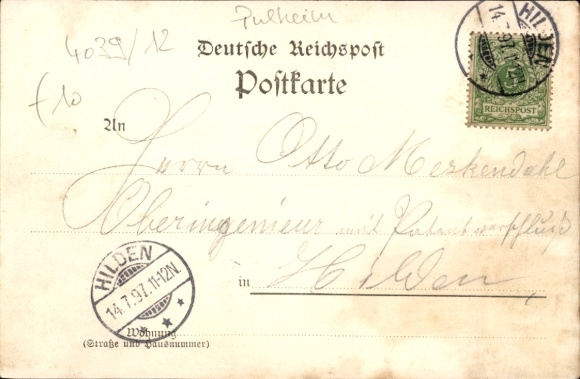 Pulheim
4039/12
Deutsche Reichspost
Postkarte
HILDEN
14.7.97.11-12N.
REICHSPOST
f10
An
Herrn Otto Merkendahl
Oberingenieur mit Patentverschluß
in Hilden
HILDEN
14.7.97.11-12N.
Wohnung
(Straße und Hausnummer)